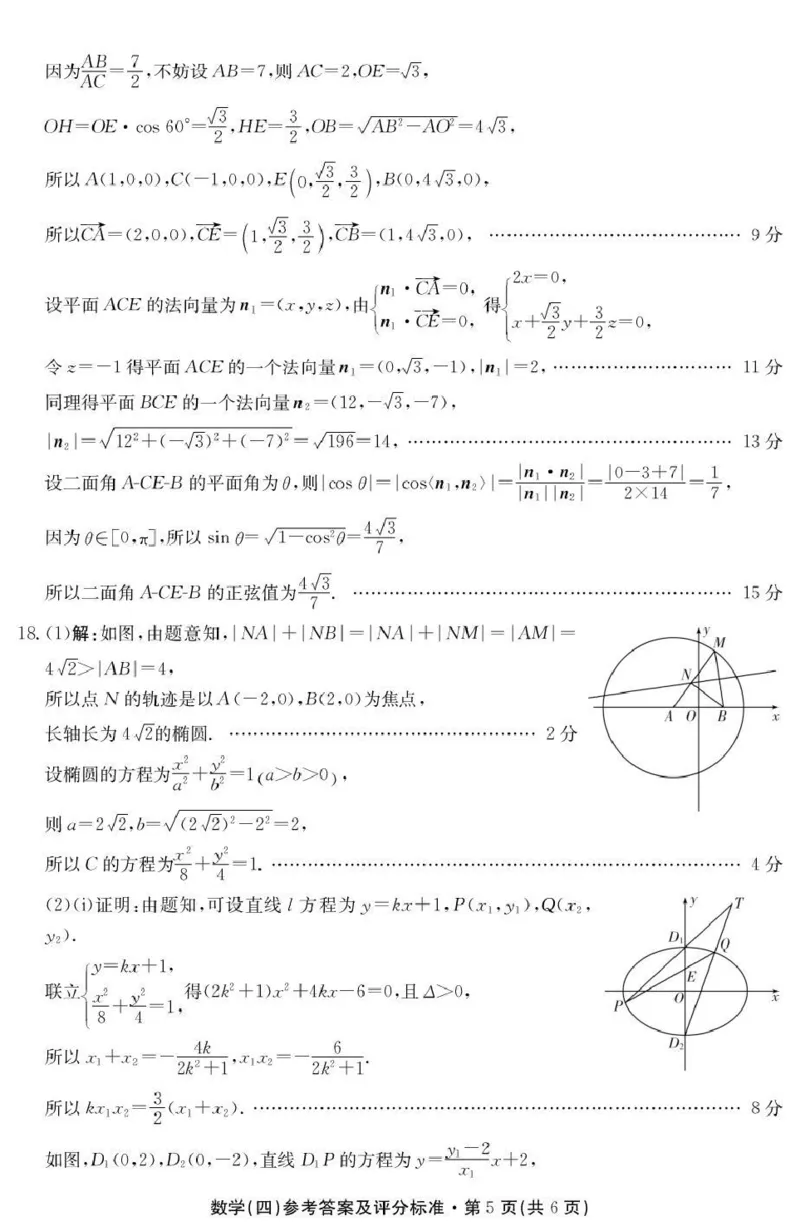 因为AB/AC=7/2,不妨设AB=7,则AC=2,OE=√3,
OH=OE·cos 60°=√3/2,HE=3/2,OB=√(AB²-AO²)=4√3,
所以A(1,0,0),C(-1,0,0),E(0,√3/2,3/2),B(0,4√3,0),
所以CA→=(2,0,0),CE→=(1,√3/2,3/2),CB→=(1,4√3,0), …………………………………… 9分
设平面ACE的法向量为n₁=(x,y,z),由{n₁·CA→=0, n₁·CE→=0, 得{2x=0, x+√3/2y+3/2z=0,
令z=-1得平面ACE的一个法向量n₁=(0,√3,-1),|n₁|=2, ………………………… 11分
同理得平面BCE的一个法向量n₂=(12,-√3,-7),
|n₂|=√(12²+(-√3)²+(-7)²)=√196=14, ……………………………………………… 13分
设二面角A-CE-B的平面角为θ,则|cos θ|=|cos⟨n₁,n₂⟩|=|n₁·n₂|/(|n₁||n₂|)=|0-3+7|/(2×14)=1/7,
因为θ∈[0,π],所以sin θ=√(1-cos²θ)=4√3/7,
所以二面角A-CE-B的正弦值为4√3/7. ……………………………………………………… 15分
18.(1)解:如图,由题意知,|NA|+|NB|=|NA|+|NM|=|AM|=
4√2>|AB|=4,
所以点N的轨迹是以A(-2,0),B(2,0)为焦点,
长轴长为4√2的椭圆. …………………………………………… 2分
设椭圆的方程为x²/a²+y²/b²=1(a>b>0),
则a=2√2,b=√((2√2)²-2²)=2,
所以C的方程为x²/8+y²/4=1. …………………………………………………………………… 4分
y
M
N
A O B x
(2)(i)证明:由题知,可设直线l方程为y=kx+1,P(x₁,y₁),Q(x₂,
y₂).
联立{y=kx+1, x²/8+y²/4=1, 得(2k²+1)x²+4kx-6=0,且Δ>0,
所以x₁+x₂=-4k/(2k²+1),x₁x₂=-6/(2k²+1).
所以kx₁x₂=3/2(x₁+x₂). ……………………………………………………………………… 8分
y T
D₁
Q
E
O x
P
D₂
如图,D₁(0,2),D₂(0,-2),直线D₁P的方程为y=(y₁-2)/x₁ x+2,
数学(四)参考答案及评分标准·第5页(共6页)